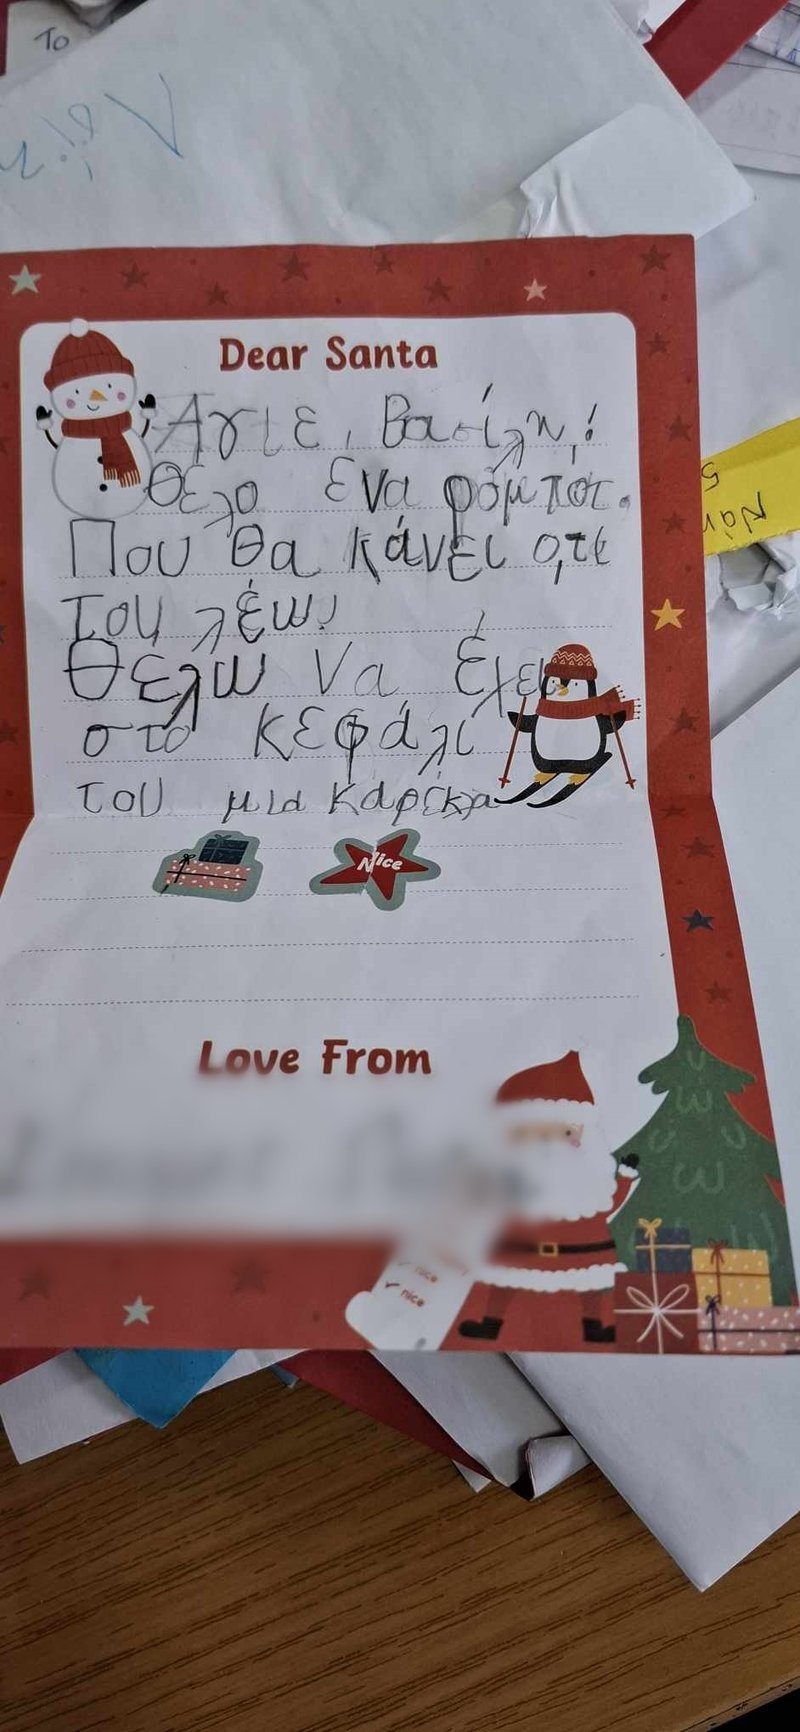 To
Dear Santa
Αγιε, Βασίλη,!
Θέλο ενα ρόμπότ.
Που θα κάνει ο,τι
του λέω!
Θελω να έχει
στο κεφάλί
του μια κάρέκλα
Nice
Love From
nice
nice